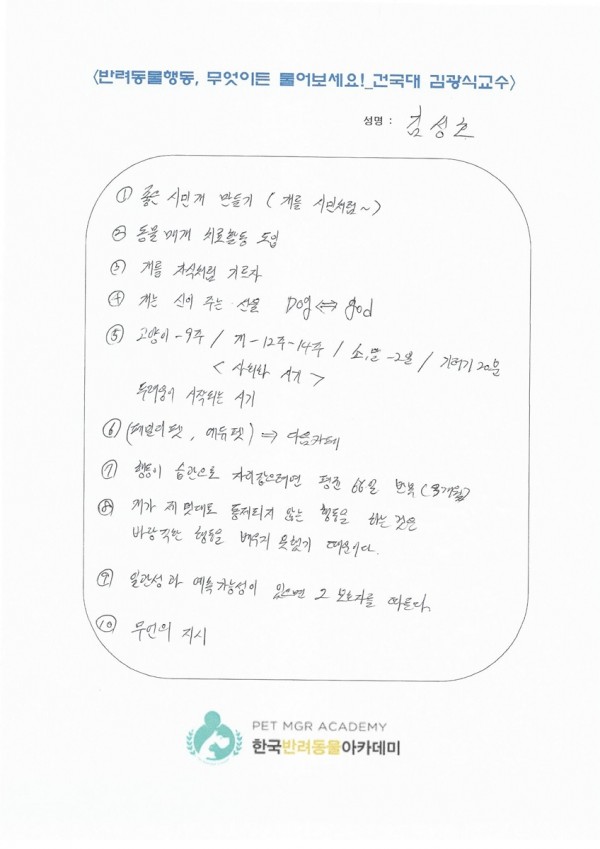 <반려동물행동, 무엇이든 물어보세요!_건국대 김광식교수>
성명 : 김성호
① 좋은 시민개 만들기 ( 개를 시민처럼~)
② 동물매개 치료활동 도입
③ 개를 자식처럼 기르자
④ 개는 신이 주는 선물 Dog ⇔ god
⑤ 고양이-9주 / 개-12주-14주 / 소,말-2일 / 기러기 20분
< 사회화 시기 >
두려움이 시작되는 시기
⑥ (패밀리펫, 에듀펫) ⇒ 다음카페
⑦ 행동이 습관으로 자리잡으려면 평균 66일 반복 (3개월)
⑧ 개가 제멋대로 통제되지 않는 행동을 하는 것은
바람직한 행동을 배우지 못했기 때문이다.
⑨ 일관성과 예측가능성이 있으면 그 보호자를 따른다.
⑩ 무언의 지시
PET MGR ACADEMY
한국반려동물아카데미